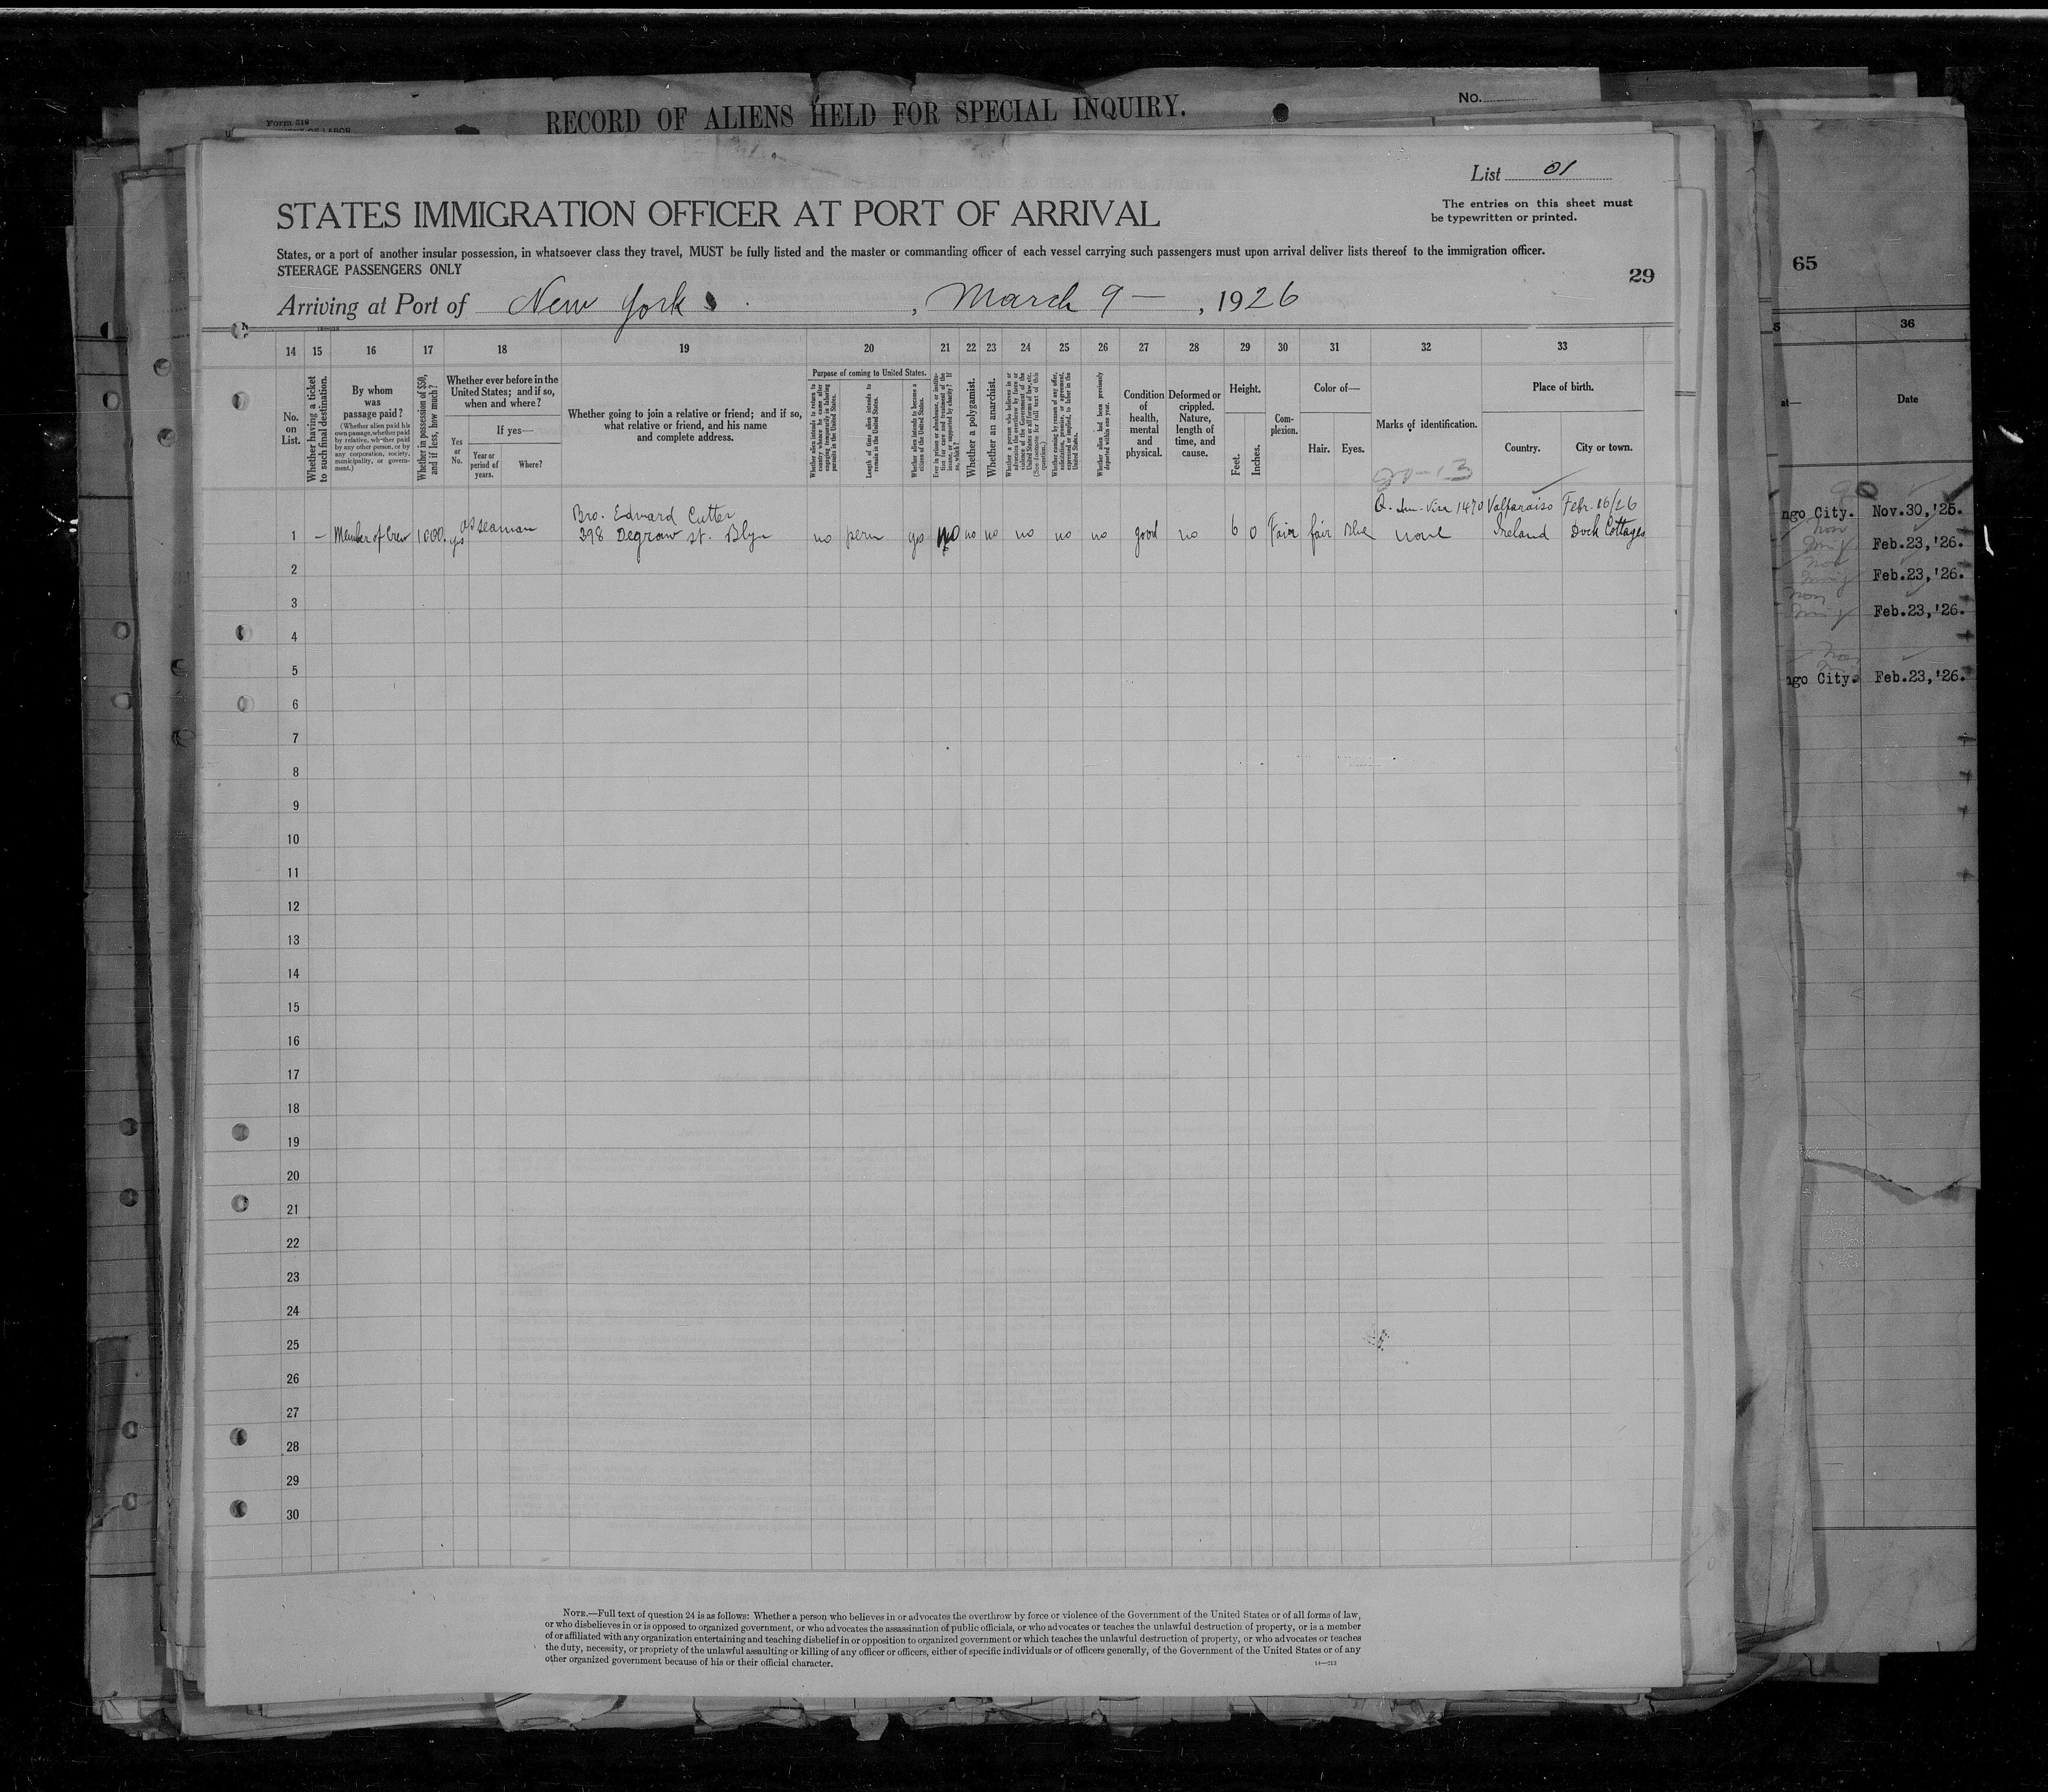 Form 518
RECORD OF ALIENS HELD FOR SPECIAL INQUIRY.
No.
List 01
STATES IMMIGRATION OFFICER AT PORT OF ARRIVAL
The entries on this sheet must
be typewritten or printed.
States, or a port of another insular possession, in whatsoever class they travel, MUST be fully listed and the master or commanding officer of each vessel carrying such passengers must upon arrival deliver lists thereof to the immigration officer.
STEERAGE PASSENGERS ONLY
29
65
Arriving at Port of New York, March 9 — , 1926
14 15 16 17 18 19 20 21 22 23 24 25 26 27 28 29 30 31 32 33
36
No. on List.
Whether having a ticket to such final destination.
By whom was passage paid?
(Whether alien paid his own passage, whether paid by relative, whether paid by any other person, or by any corporation, society, municipality, or government.)
Whether in possession of $50, and if less, how much?
Whether ever before in the United States; and if so, when and where?
Yes or No.
If yes—
Year or period of years.
Where?
Whether going to join a relative or friend; and if so, what relative or friend, and his name and complete address.
Purpose of coming to United States.
Whether alien intends to return to country whence he came after engaging temporarily in laboring pursuits in the United States.
Length of time alien intends to remain in the United States.
Whether alien intends to become a citizen of the United States.
Ever in prison or almshouse, or institution for care and treatment of the insane, or supported by charity? If so, which?
Whether a polygamist.
Whether an anarchist.
Whether a person who believes in or advocates the overthrow by force or violence of the Government of the United States or all forms of law, etc. (See footnote for full text of this question.)
Whether coming by reason of any offer, solicitation, promise, or agreement, expressed or implied, to labor in the United States.
Whether alien had been previously deported within one year.
Condition of health, mental and physical.
Deformed or crippled. Nature, length of time, and cause.
Height.
Feet.
Inches.
Complexion.
Color of—
Hair.
Eyes.
Marks of identification.
Place of birth.
Country.
City or town.
Date
Q. Im. Visa 1470 Valparaiso Febr. 16/26
Bro. Edward Cutter
1 — Member of Crew 1000. yes as seaman 398 Degraw st. Blyn no perm yes no no no no no no good no 6 0 Fair fair blue none Ireland Dock Cottages
2
3
4
5
6
7
8
9
10
11
12
13
14
15
16
17
18
19
20
21
22
23
24
25
26
27
28
29
30
ngo City. Nov.30,'25.
Feb.23,'26.
Feb.23,'26.
Feb.23,'26.
ngo City. Feb.23,'26.
NOTE.—Full text of question 24 is as follows: Whether a person who believes in or advocates the overthrow by force or violence of the Government of the United States or of all forms of law,
or who disbelieves in or is opposed to organized government, or who advocates the assassination of public officials, or who advocates or teaches the unlawful destruction of property, or is a member
of or affiliated with any organization entertaining and teaching disbelief in or opposition to organized government or which teaches the unlawful destruction of property, or who advocates or teaches
the duty, necessity, or propriety of the unlawful assaulting or killing of any officer or officers, either of specific individuals or of officers generally, of the Government of the United States or of any
other organized government because of his or their official character.
14—213